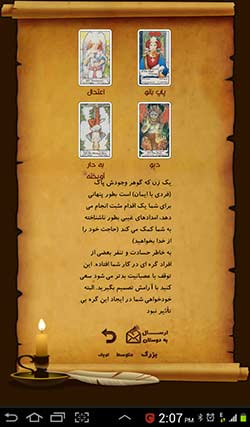 پاپ بانو
اعتدال
دیو
به دار
آویخته
یک زن که گوهر وجودش پاک
(فردی با ایمان) است بطور پنهانی
برای شما یک اقدام مثبت انجام می
دهد. امدادهای غیبی بطور ناشناخته
به شما کمک می کند (حاجت خود را
از خدا بخواهید)
به خاطر حسادت و تنفر بعضی از
افراد گره ای در کار شما افتاده. این
توقف با عصبانیت بدتر می شود سعی
کنید با آرامش تصمیم بگیرید. البته
خودخواهی شما در ایجاد این گره بی
تأثیر نبود
ارسال
به دوستان
بزرگ متوسط کوچک
2:07 PM